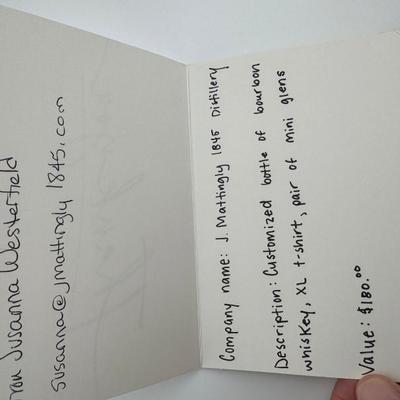 Susanna Westerfield
susanna@jmattingly1845.com
Company name: J. Mattingly 1845 Distillery
Description: Customized bottle of bourbon
whiskey, XL t-shirt, pair of mini glens
Value: $180.00